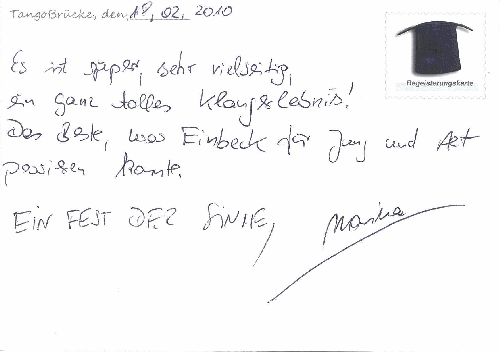 TangoBrücke, den 19, 02, 2010
Begeisterungskarte
Es ist super, sehr vielseitig,
ein ganz tolles Klangerlebnis!
Das Beste, was Einbeck für Jung und Alt
passieren konnte.
EIN FEST DER SINNE,